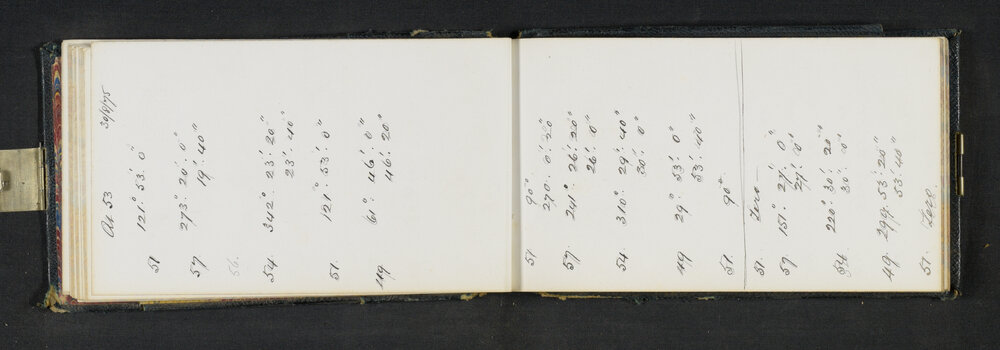 30/8/75
At 53
51 121° 53' 0"
57 273° 20' 0"
19' 40"
56.
54. 342° 23' 20"
23' 40"
51. 121° 53' 0"
49 61° 46' 0"
46' 20"
51 90°
270. 0' 20"
57. 241° 26' 20"
26' 0"
54. 310° 29' 40"
30' 0"
49 29° 53' 0"
53' 40"
51. 90°
51. Zero
57 151° 27' 0"
27' 0"
54. 220° 30' 20"
30' 0"
49. 299. 53' 20"
53' 40"
51. Zero